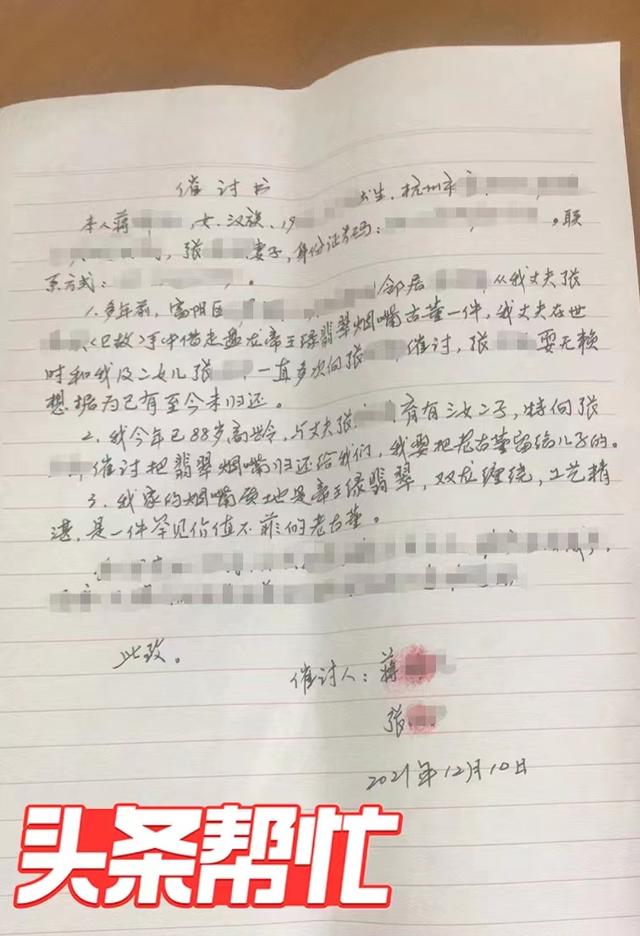 催讨书
本人蒋 ,女.汉族、19 出生.杭州市
张 妻子,身份证号码: 。联
系方式: 。
1.多年前,富阳区 邻居 从我丈夫张
(已故)手中借走盘龙帝王绿翡翠烟嘴古董一件,我丈夫在世
时和我及二女儿张 ,一直多次向张 催讨,张 耍无赖
想据为已有至今未归还。
2.我今年已88岁高龄,与丈夫张 育有三女二子,特向张
,催讨把翡翠烟嘴归还给我们,我要把老古董留给儿子的。
3.我家的烟嘴质地是帝王绿翡翠,双龙缠绕,工艺精
湛.是一件罕见价值不菲的老古董。
此致。
催讨人:蒋
张
2021年12月10日
头条帮忙